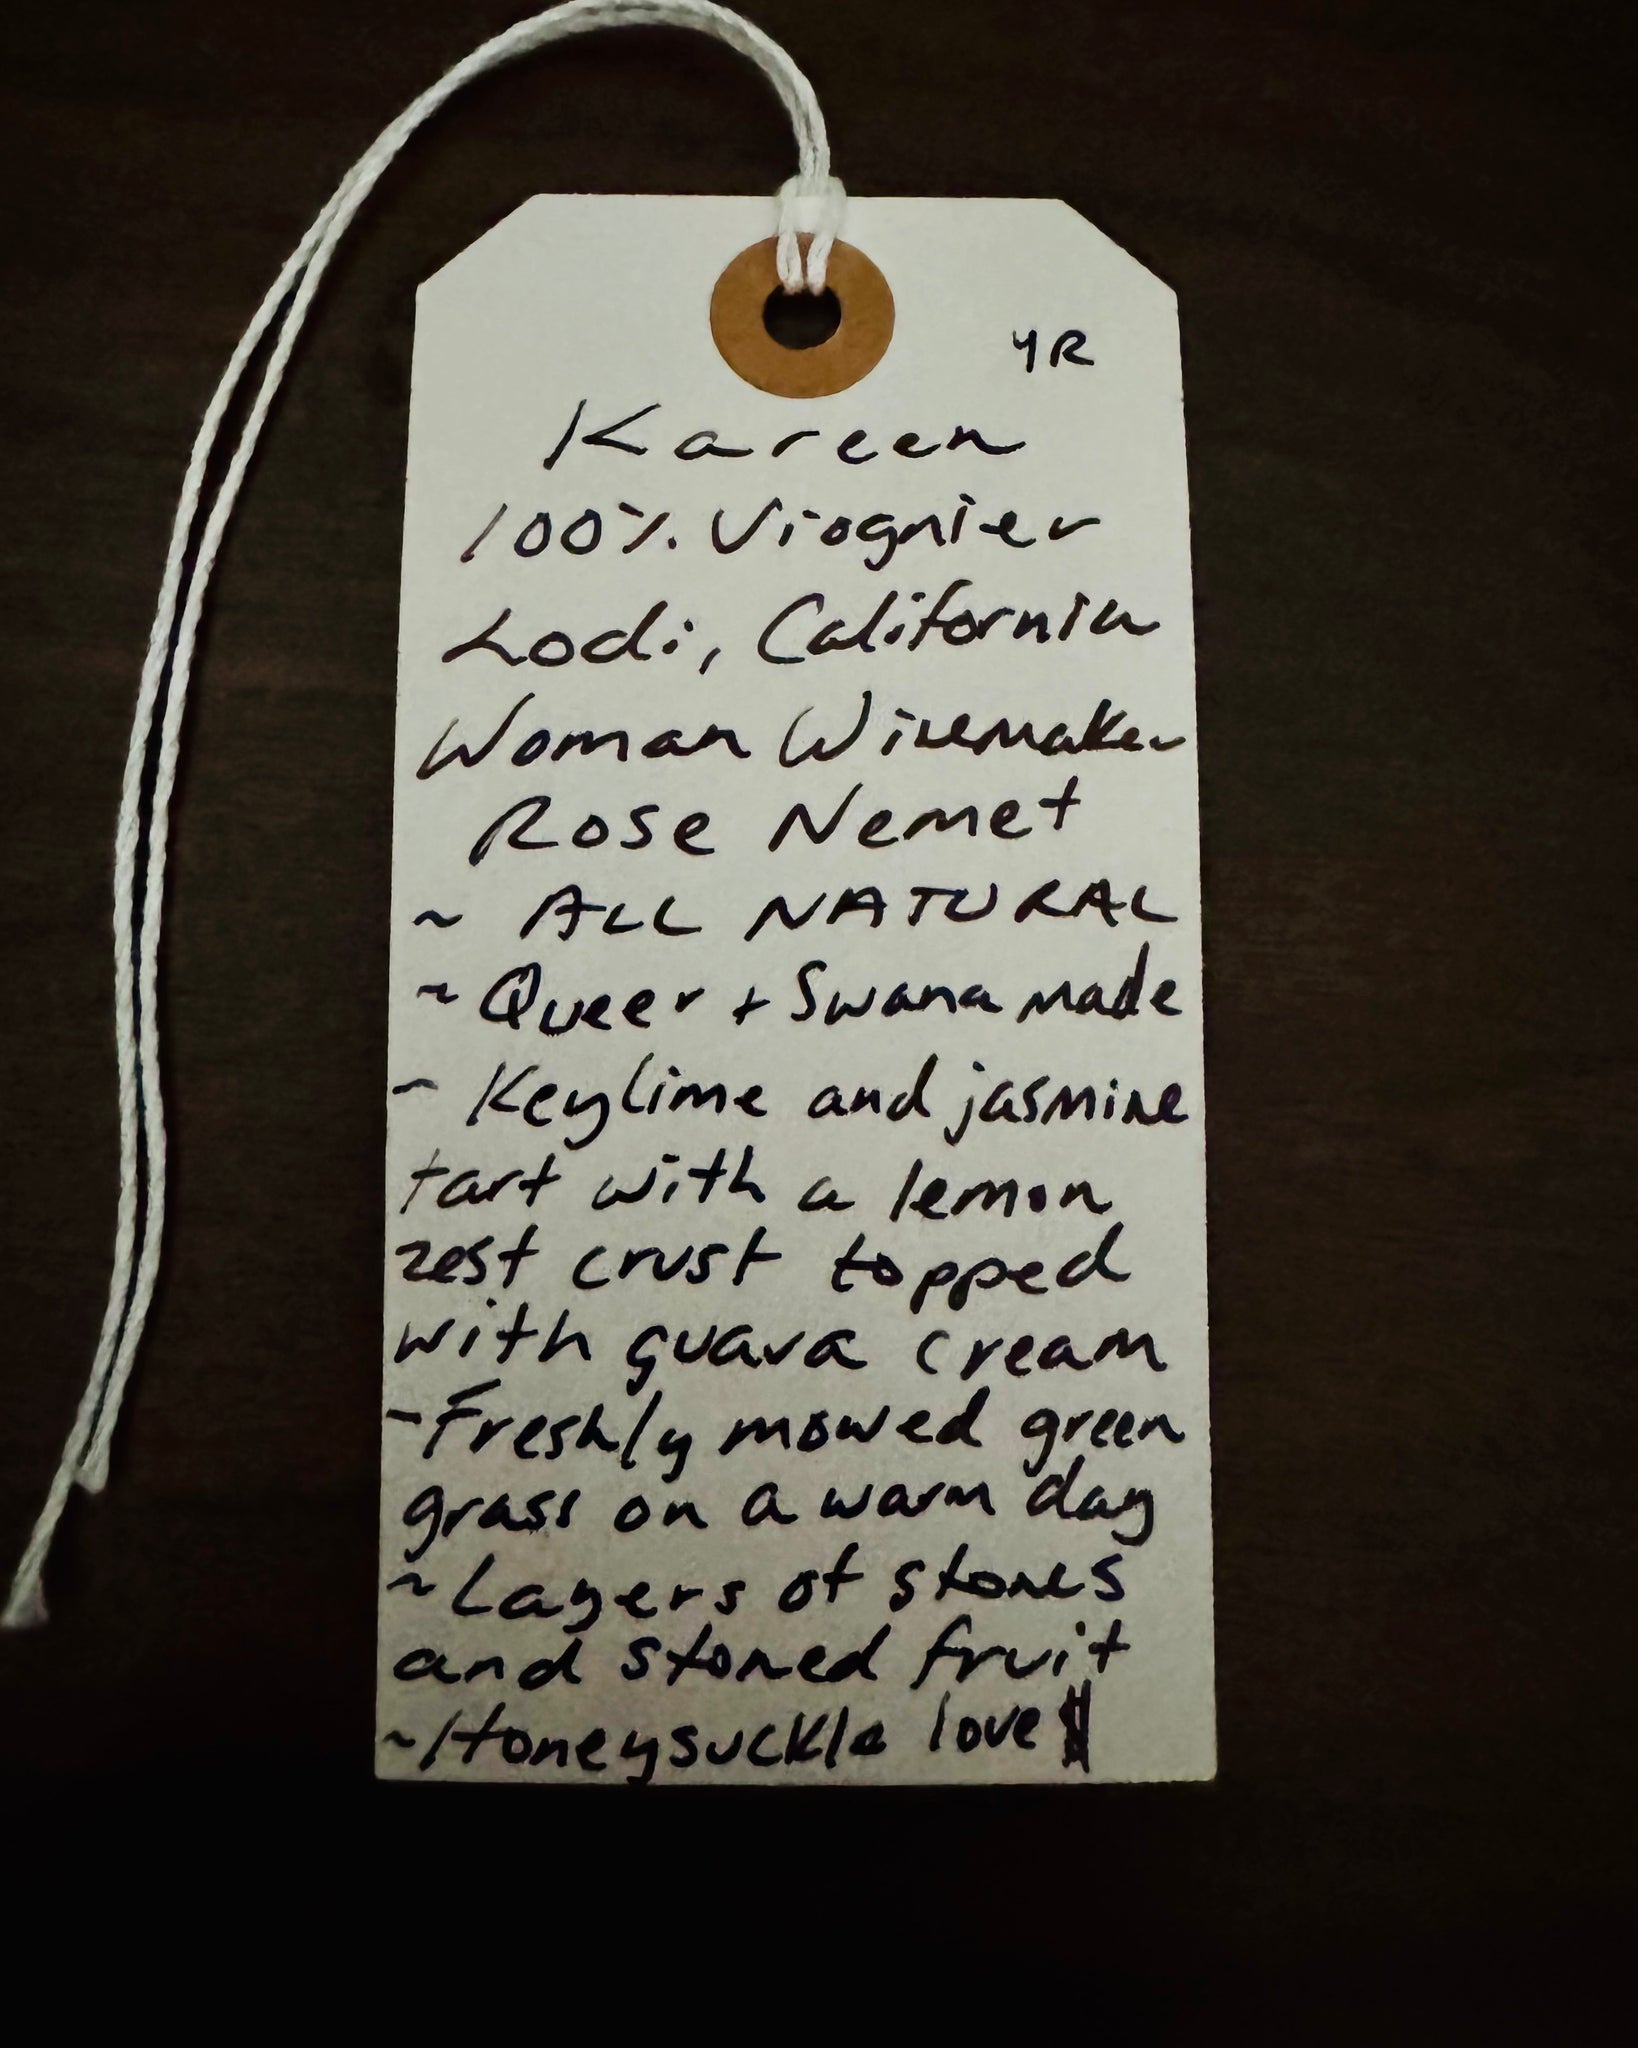 YR
Kareen
100% Viognier
Lodi, California
Woman Winemaker
Rose Nemet
~ ALL NATURAL
~ Queer + Swana made
~ Keylime and jasmine
tart with a lemon
zest crust topped
with guava cream
~ Freshly mowed green
grass on a warm day
~ Layers of stones
and stoned fruit
~ Honeysuckle love